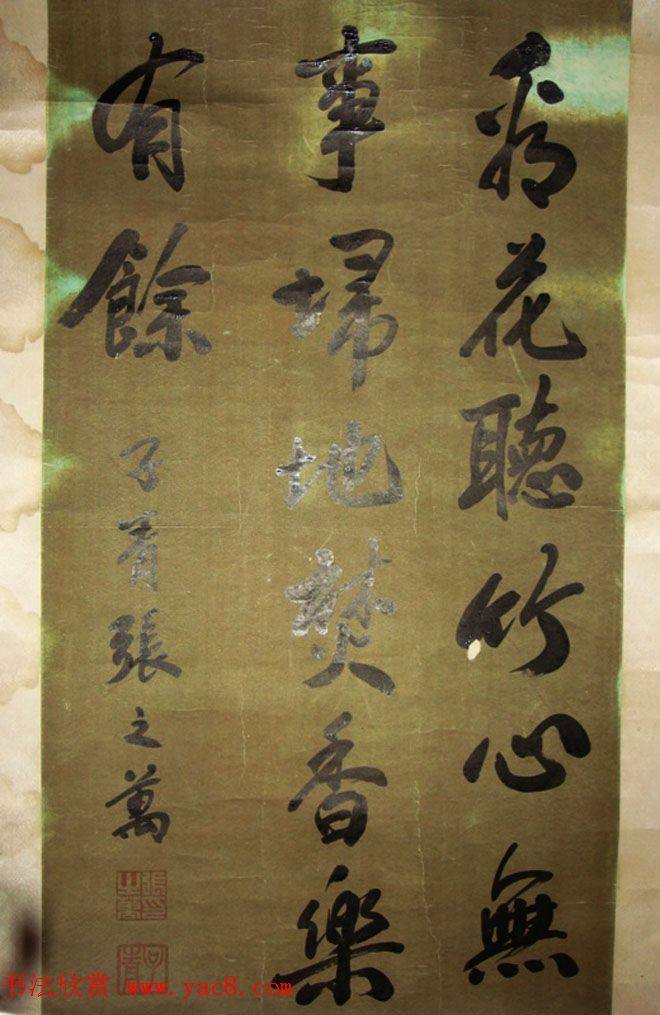 看花聽竹心無
事埽地焚香樂
有餘
子青張之萬
張之萬印
子青
书法欣赏 www.yac8.com